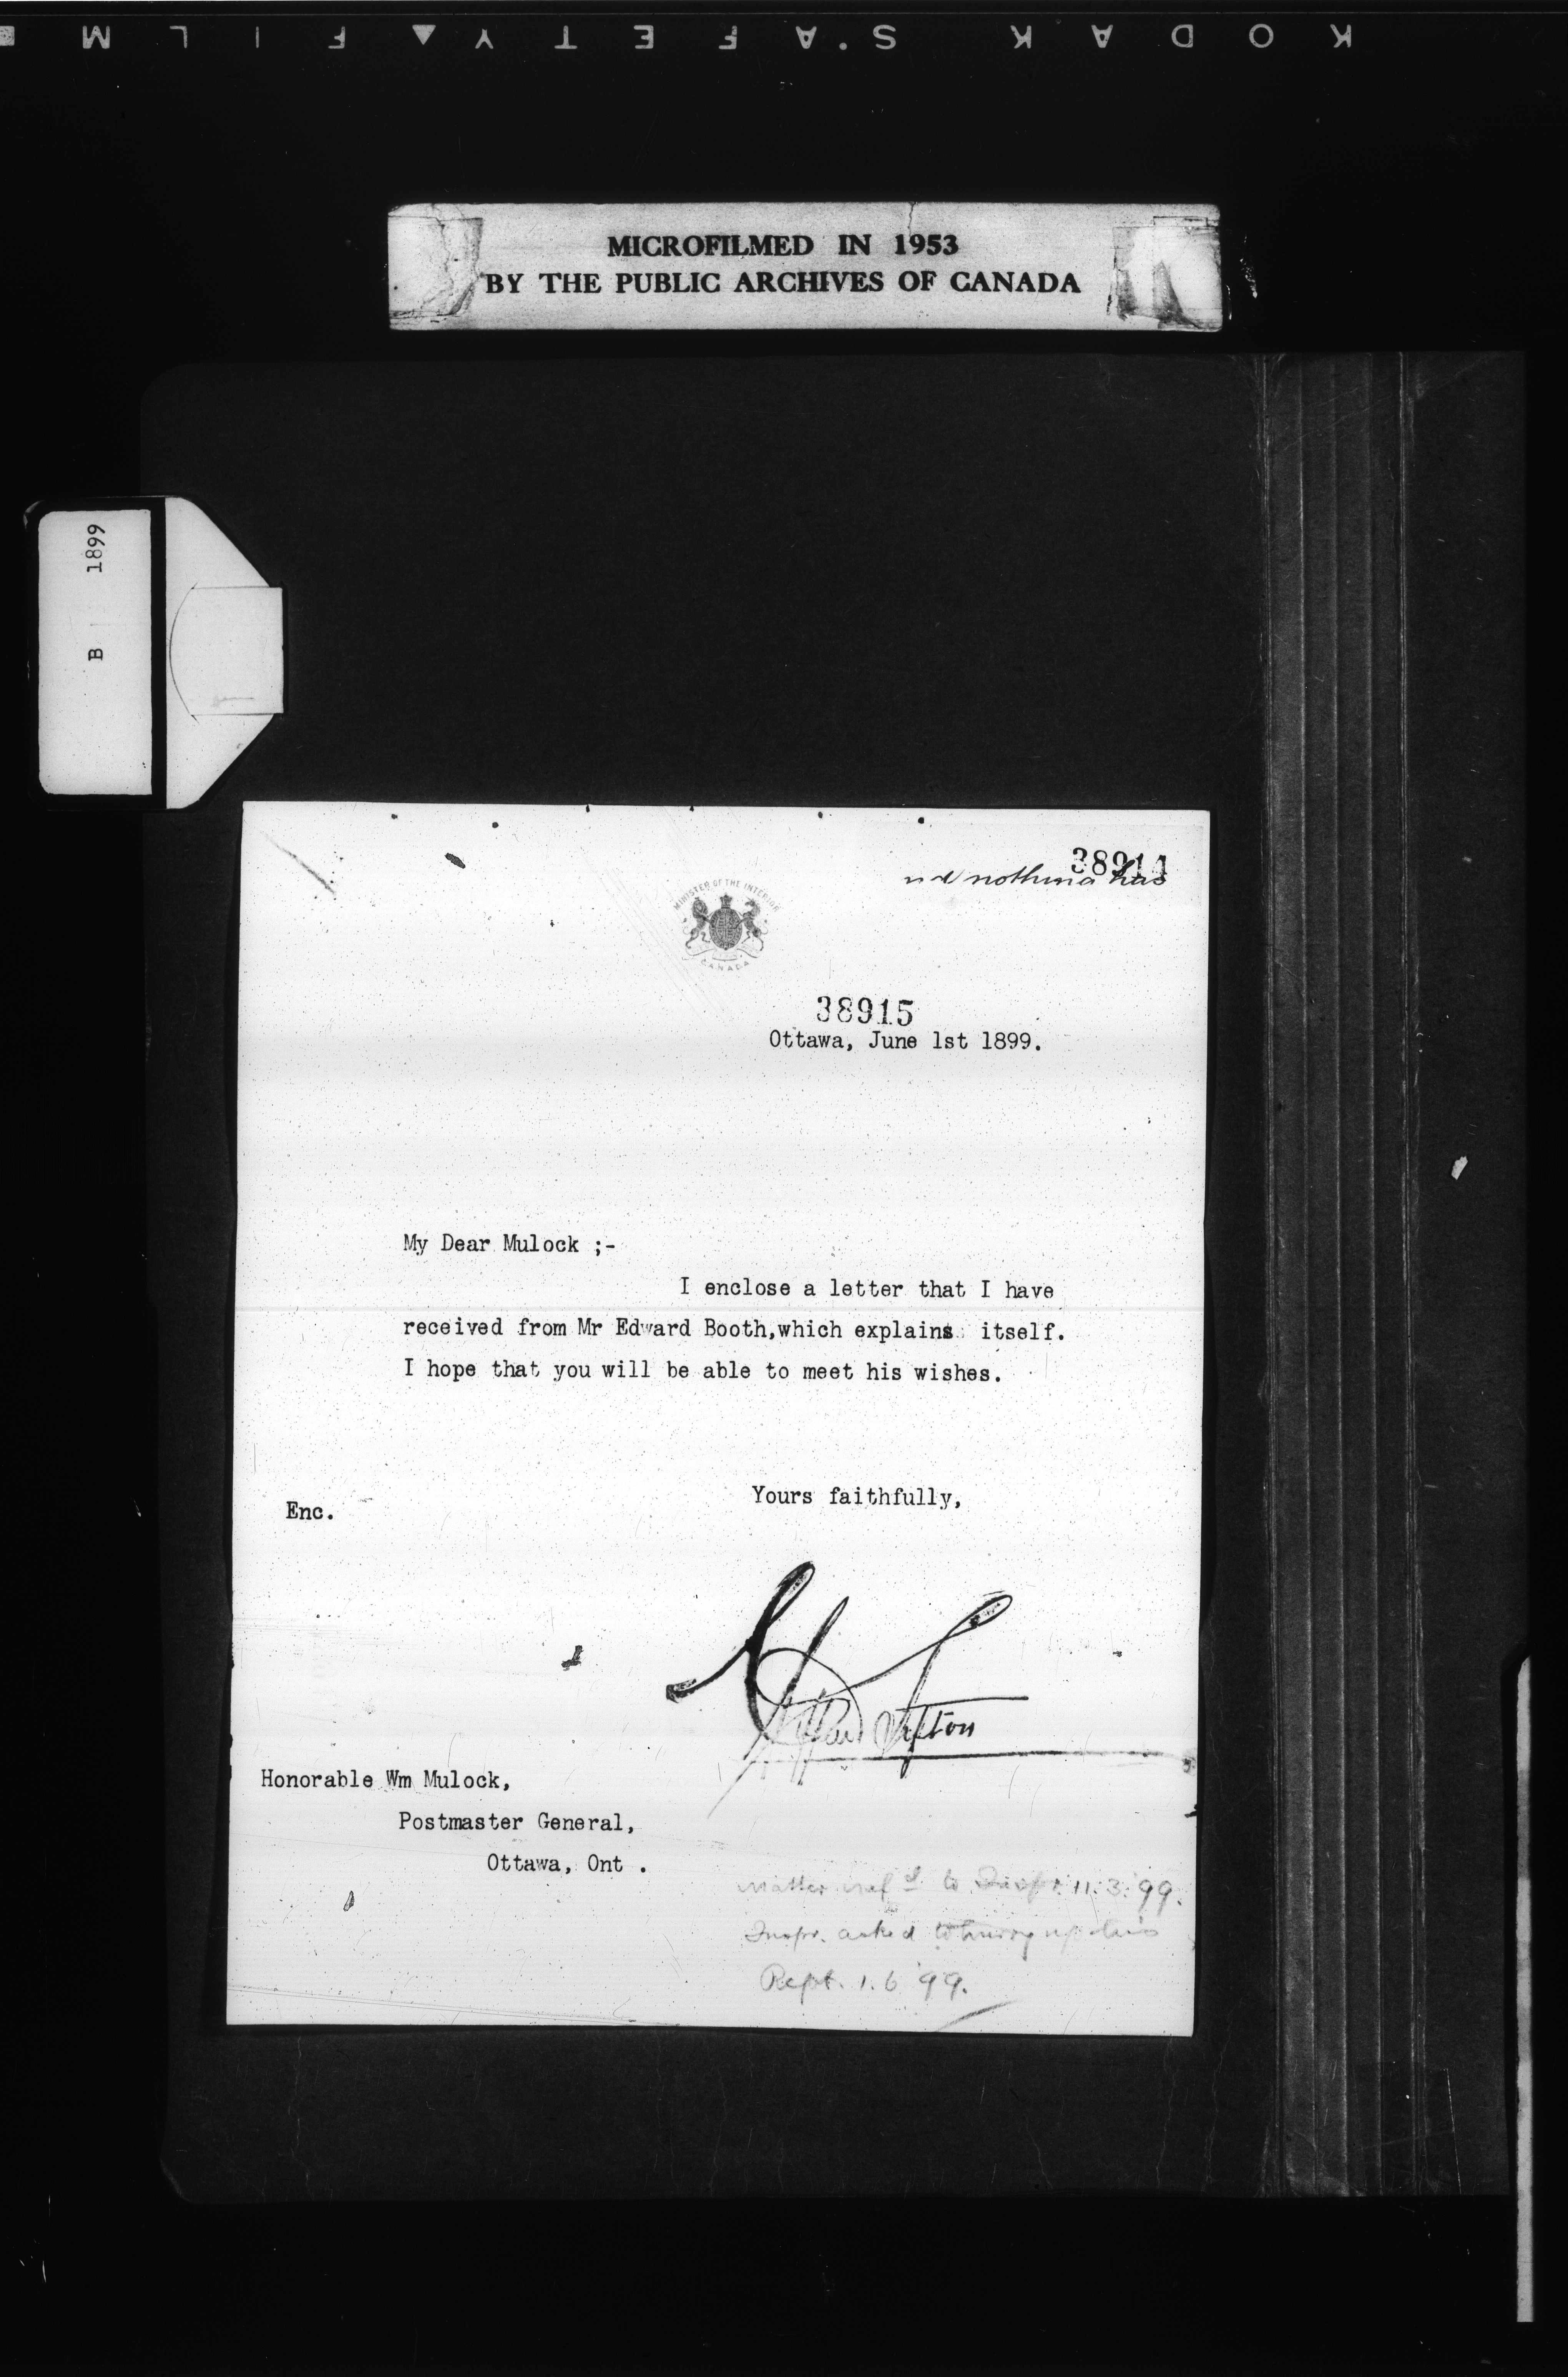 KODAK SAFETY FILM
MICROFILMED IN 1953
BY THE PUBLIC ARCHIVES OF CANADA
B 1899
38914
nothing has
MINISTER OF THE INTERIOR
CANADA
38915
Ottawa, June 1st 1899.
My Dear Mulock ;-
I enclose a letter that I have
received from Mr Edward Booth,which explains itself.
I hope that you will be able to meet his wishes.
Yours faithfully,
Enc.
Clifford Sifton
Honorable Wm Mulock,
Postmaster General,
Ottawa, Ont .
Matter ref d to Inspr. 11.3.'99.
Inspr. asked to hurry up this
Rept. 1.6 '99.